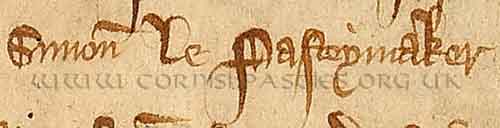 Simon le Pasteymaker
WWW.CORNISHPASTIES.ORG.UK